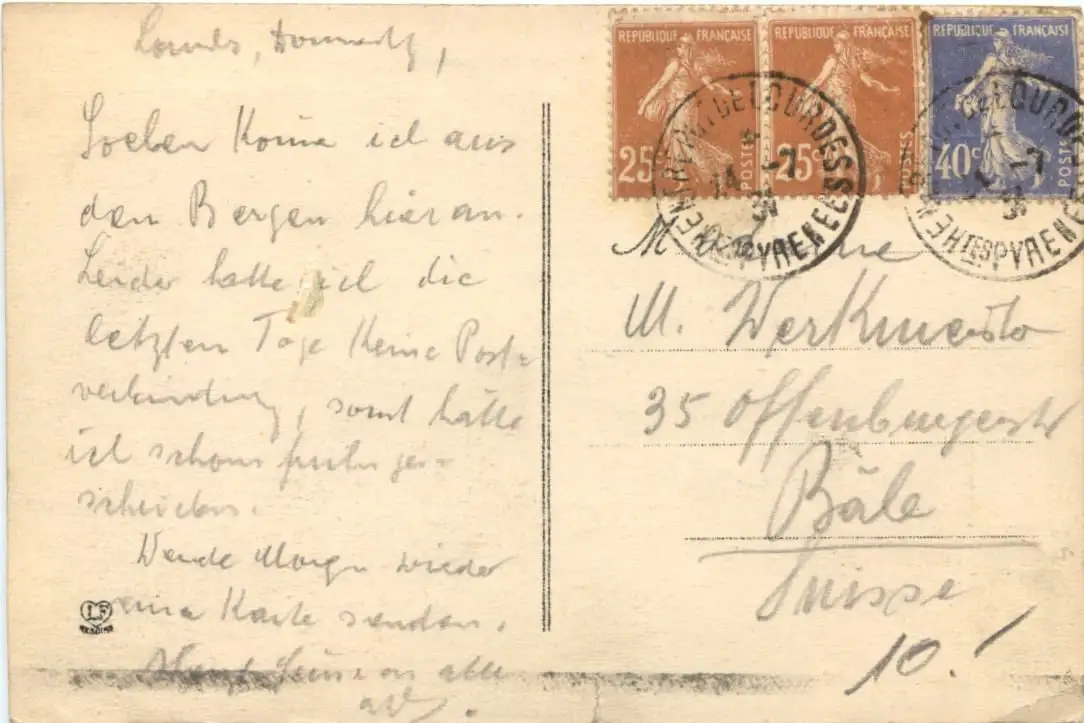 Soeben komme ich aus
den Bergen hier an.
Leider hatte ich die
letzten Tage keine Post=
verbindung, sonst hätte
ich schon früher ge=
schrieben.
Werde Morgen wieder
eine Karte senden.
alle
RÉPUBLIQUE FRANÇAISE
25c
POSTES
RÉPUBLIQUE FRANÇAISE
25c
POSTES
RÉPUBLIQUE FRANÇAISE
40c
POSTES
LOURDES
HTES PYRENEES
-7
LOURDES
HTES PYRENEES
-7
M. Werkmeister
35 Offenburgerstr
Bâle
Suisse
10.
LF